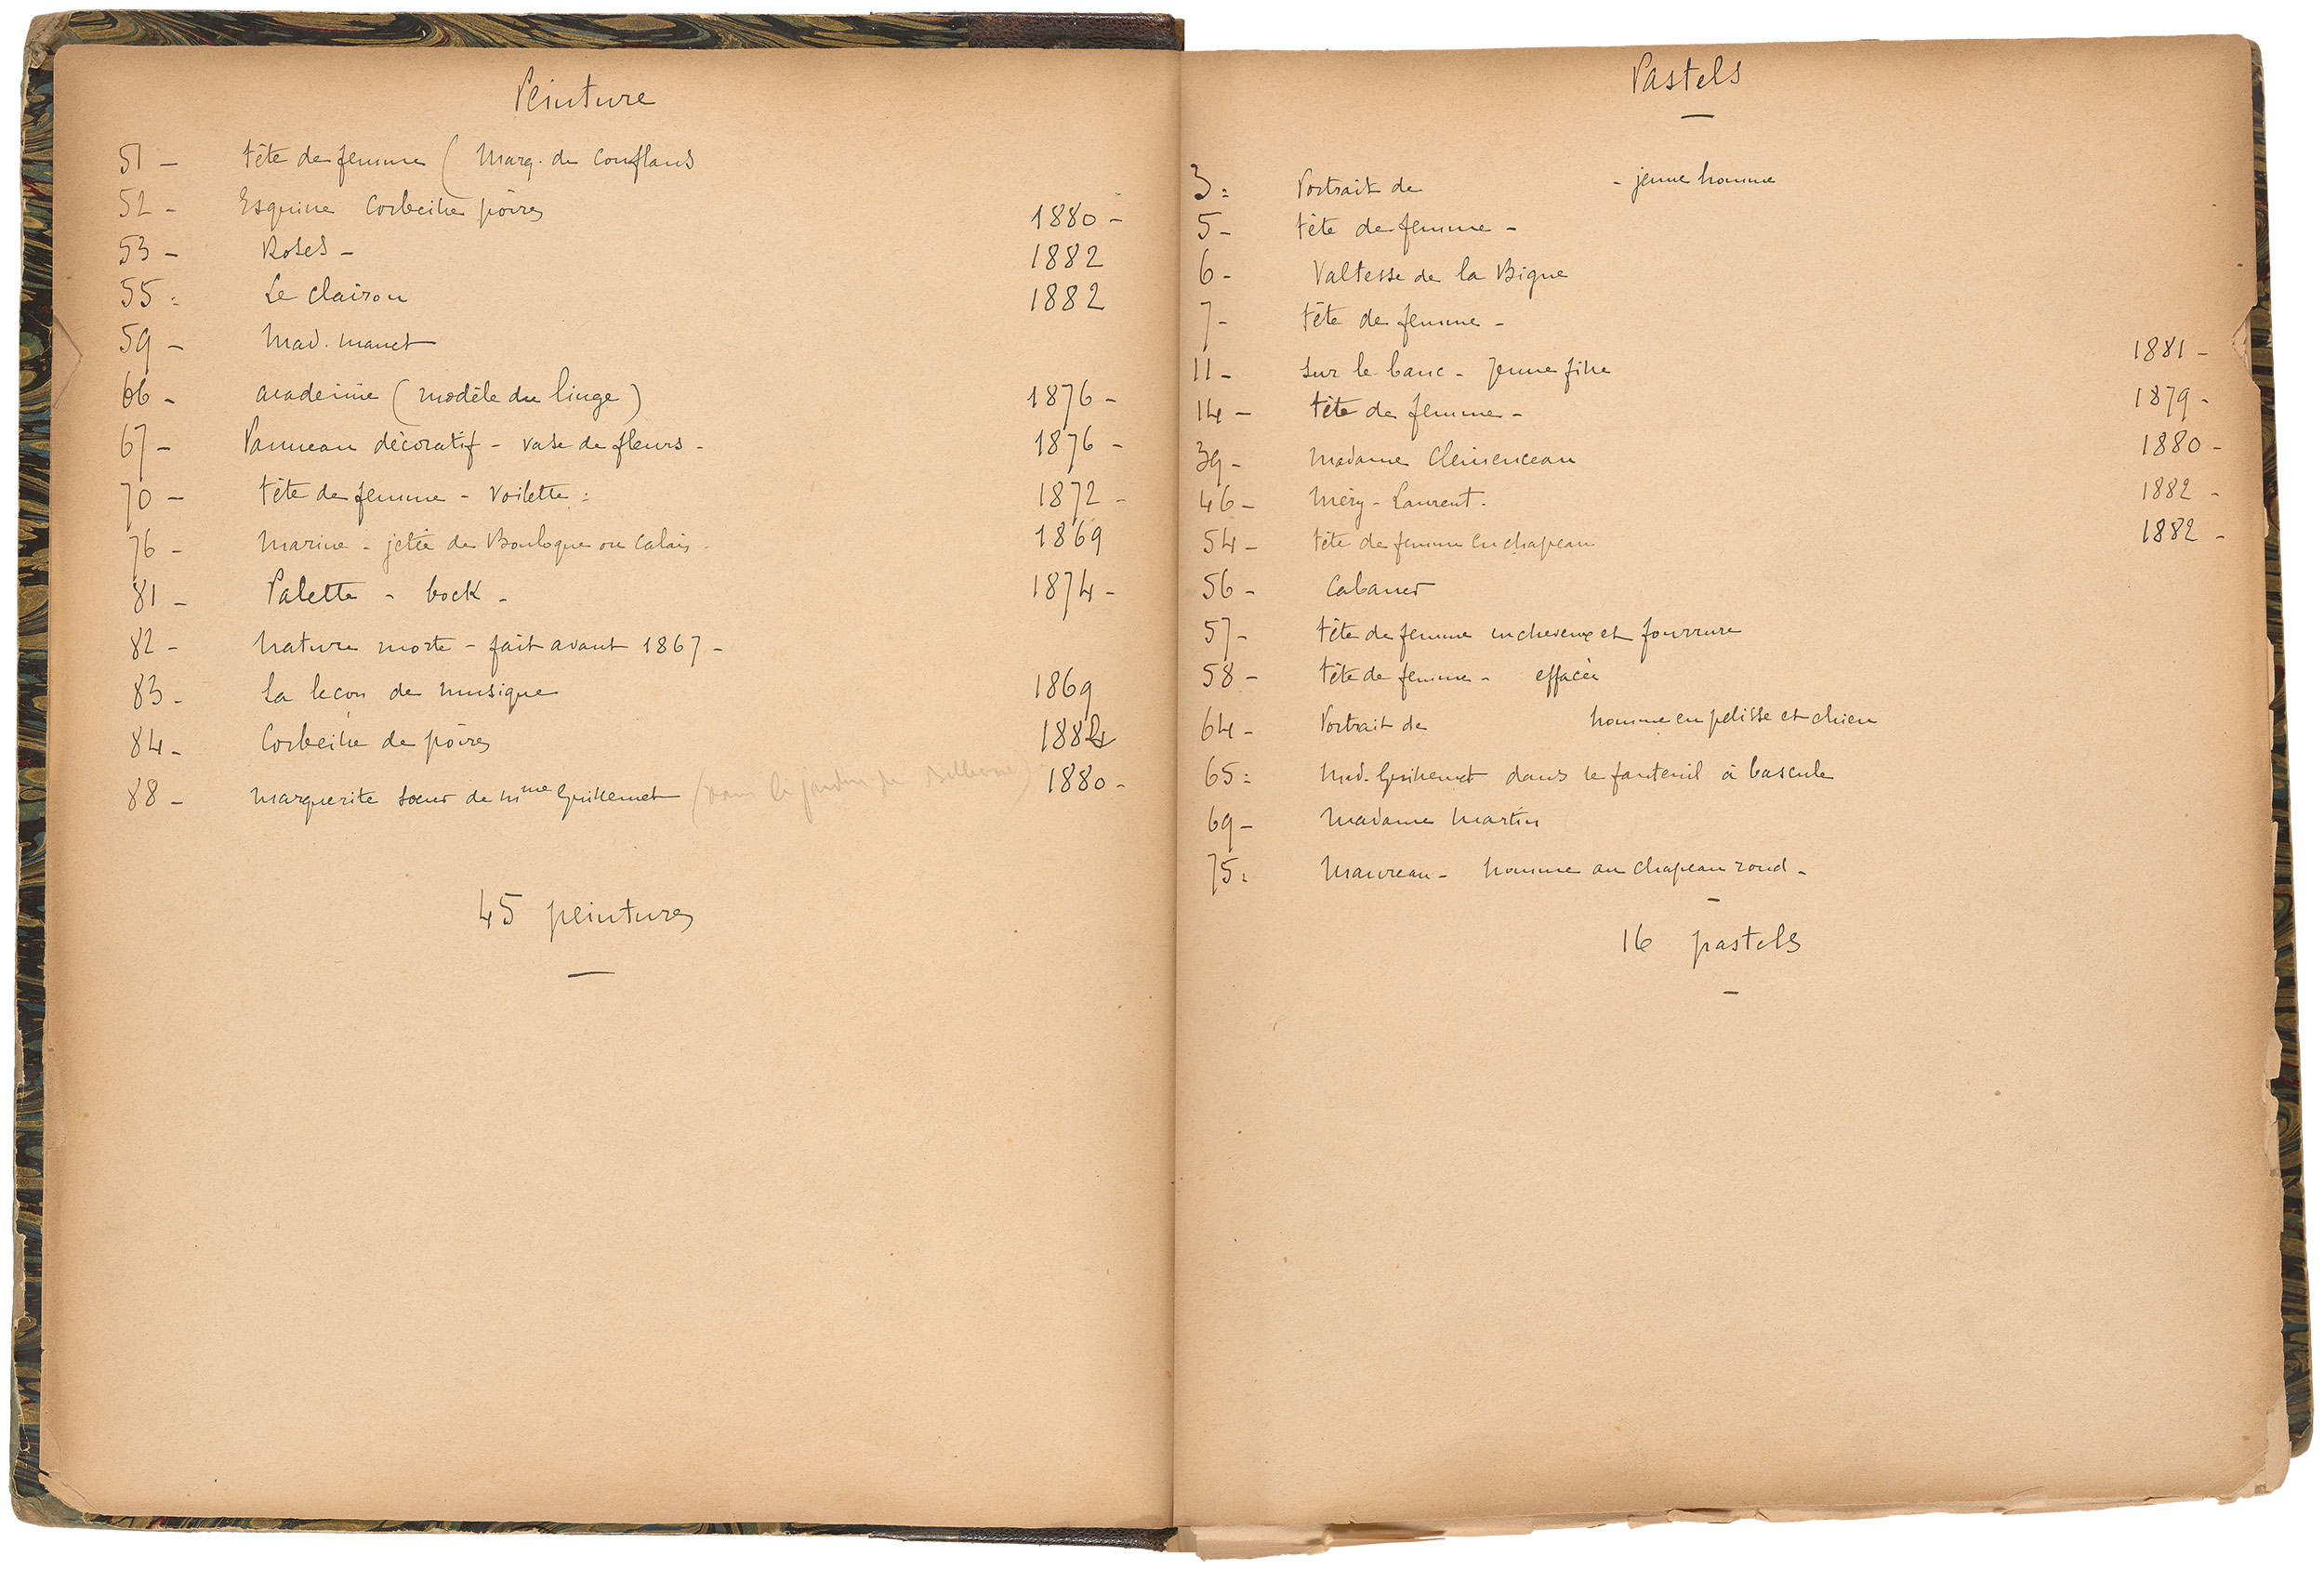 Peinture
51 - tête de femme ( Marq. de Conflans
52 - Esquisse Corbeille poires 1880 -
53 - Roses - 1882
55 = Le clairon 1882
59 - Mad. Manet
66 - académie ( modèle du linge ) 1876 -
67 - Panneau décoratif - vase de fleurs - 1876 -
70 - tête de femme - voilette = 1872 -
76 - Marine - jetée de Boulogne ou Calais - 1869
81 - Palette - bock - 1874 -
82 - Nature morte - fait avant 1867 -
83 - la lecon de musique 1869
84 - Corbeille de poires 188
88 - Marguerite soeur de Mme Guillemet ( dans le jardin de Bellevue ) 1880 -
45 peintures
Pastels
3 = Portrait de - jeune homme
5 - tête de femme -
6 - Valtesse de la Bigne
7 - tête de femme -
11 - sur le banc - Jeune fille 1881 -
14 - tête de femme - 1879 -
39 - Madame Clemenceau 1880 -
46 - Méry - Laurent - 1882 -
54 - tête de femme en chapeau 1882 -
56 - Cabaner
57 - tête de femme en cheveux et fourrure
58 - tête de femme - effacée
64 - Portrait de homme en pelisse et chien
65 = Mad. Guillemet dans le fauteuil à bascule
69 - Madame Martin
75 = Maureau - homme au chapeau rond -
16 pastels